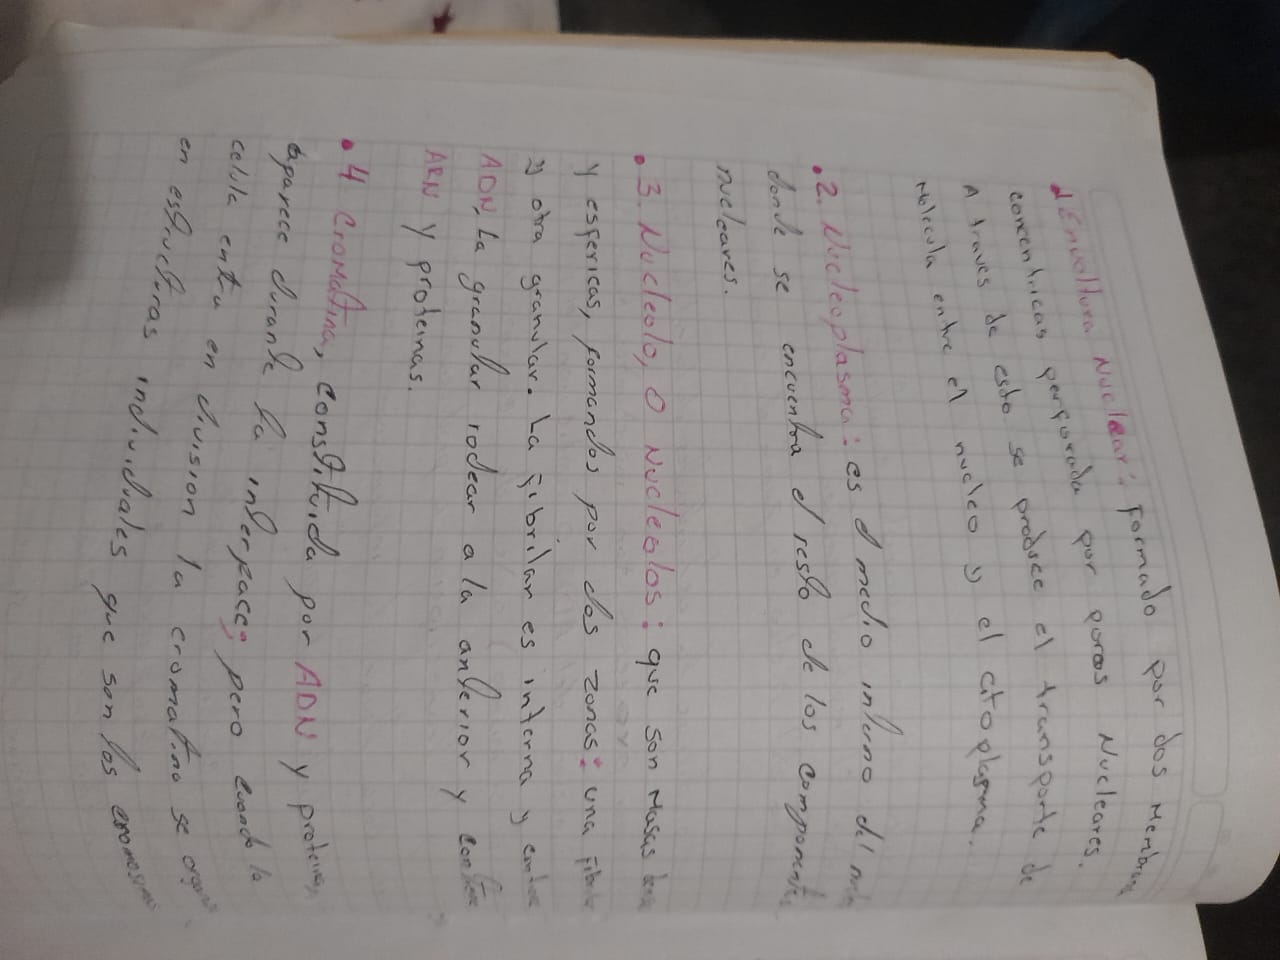 1 Envoltura Nuclear: formado por dos Membrana
concentricas perforada por poros Nucleares.
A traves de esto se produce el transporte de
Molecula entre el nucleo y el citoplasma.
.2. Nucleoplasma: es el medio interno del
donde se encuentra el resto de los componentes
nucleares.
.3. Nucleolo, O Nucleolos: que son Masas
Y esfericas, formandos por dos zonas: una
y otra granular. La fibrilar es interna y
ADN, La granular rodear a la anterior y contiene
ARN Y proteinas.
.4 Cromatina, constituida por ADN y proteinas,
aparece durante la interface; pero cuando la
celula entra en division la cromatina se
en estructuras individuales que son los cromosomas